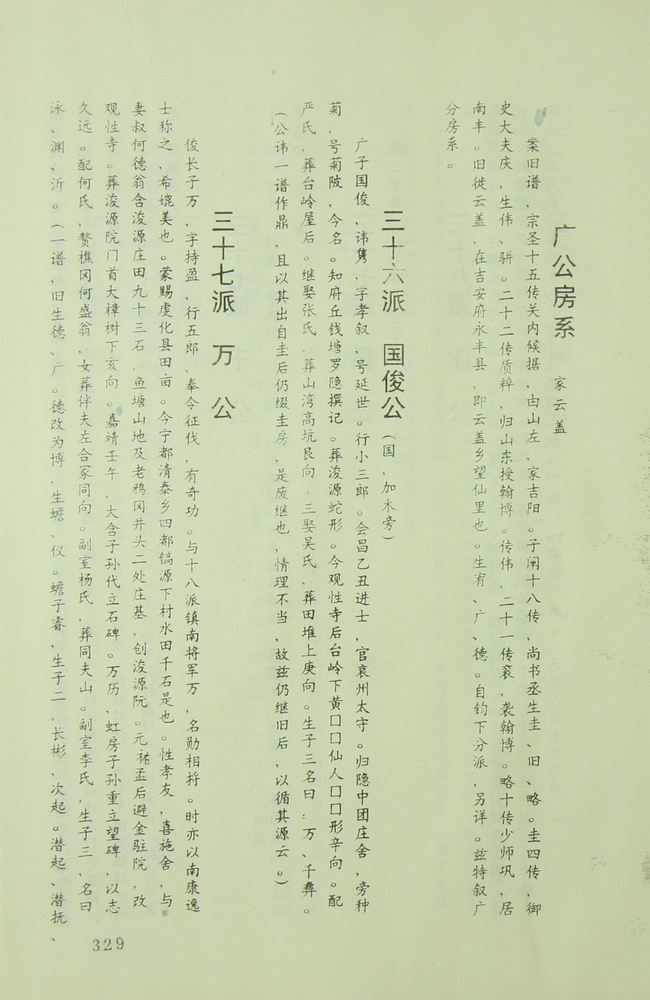 广公房系 家云盖
案旧谱，宗圣十五传关内候据，由山左，家吉阳。子闱十八传，尚书丞生圭、旧、略。圭四传，御
史大夫庆，生伟、骈。二十二传质粹，归山东授翰博。传伟，二十一传衮，袭翰博。略十传少师巩，居
南丰。旧徙云盖，在吉安府永丰县，即云盖乡望仙里也。生宥、广、德。自钧下分派，另详。兹特叙广
分房系。
三十六派 国俊公（国，加木旁）
广子国俊，讳隽，字孝叙，号延世。行小三郎。会昌乙丑进士，官袁州太守。归隐中团庄舍，旁种
菊，号菊陂，今名。知府丘钱塘罗隐撰记。葬浚源蛇形。今观性寺后台岭下黄口口仙人口口形辛向。配
严氏，葬台岭屋后。继娶张氏，葬山湾高坑艮向，三娶吴氏，葬田堆上庚向。生子三名曰：万、千彝。
（公讳一谱作鼎，且以其出自圭后仍缀圭房，是废继也，情理不当，故兹仍继旧后，以循其源云。）
三十七派 万公
俊长子万，字持盈，行五郎，奉令征伐，有奇功。与十八派镇南将军万，名勋相捋。时亦以南康逸
士称之，希媲美也。蒙赐虔化县田亩。今宁都清泰乡四部镐源下村水田千石是也。性孝友，喜施舍，与
妻叔何德翁含浚源庄田九十三石，鱼塘山地及老鸦冈井头二处庄基，创浚源阮。元祐孟后避金驻院，改
观性寺。葬浚源院门首大樟树下亥向。嘉靖壬午，大含子孙代立石碑。万历，虹房子孙重立望碑，以志
久远。配何氏，赘樵冈何盛翁，女葬伴夫左合冢同向。副室杨氏，葬同夫山。副室李氏，生子三，名曰
泳、渊、沂。（一谱，旧生德、广。德改为博，生蟾、仪。蟾子睿，生子二，长彬，次起。潜起、潜抚、
329